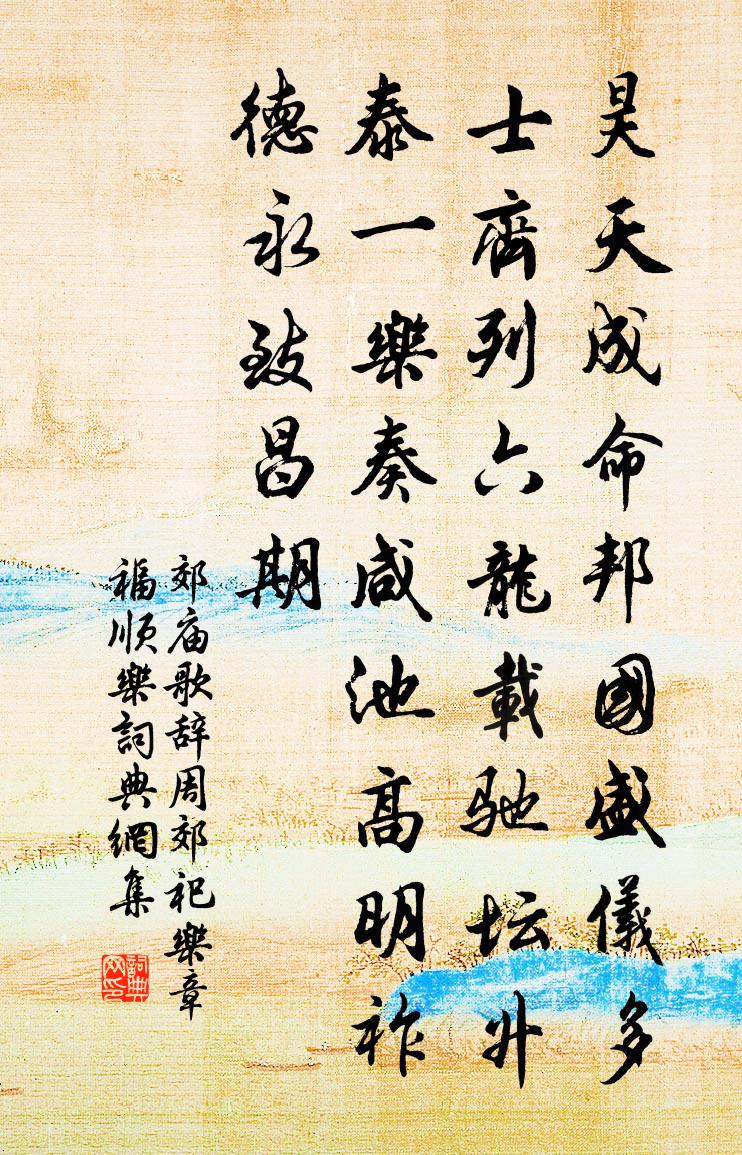 昊天成命邦國盛儀多
士齊列六龍載驰坛升
泰一樂奏咸池高明祚
德永致昌期
郊庙歌辞周郊祀樂章
福順樂詞典網集
詞典
网印